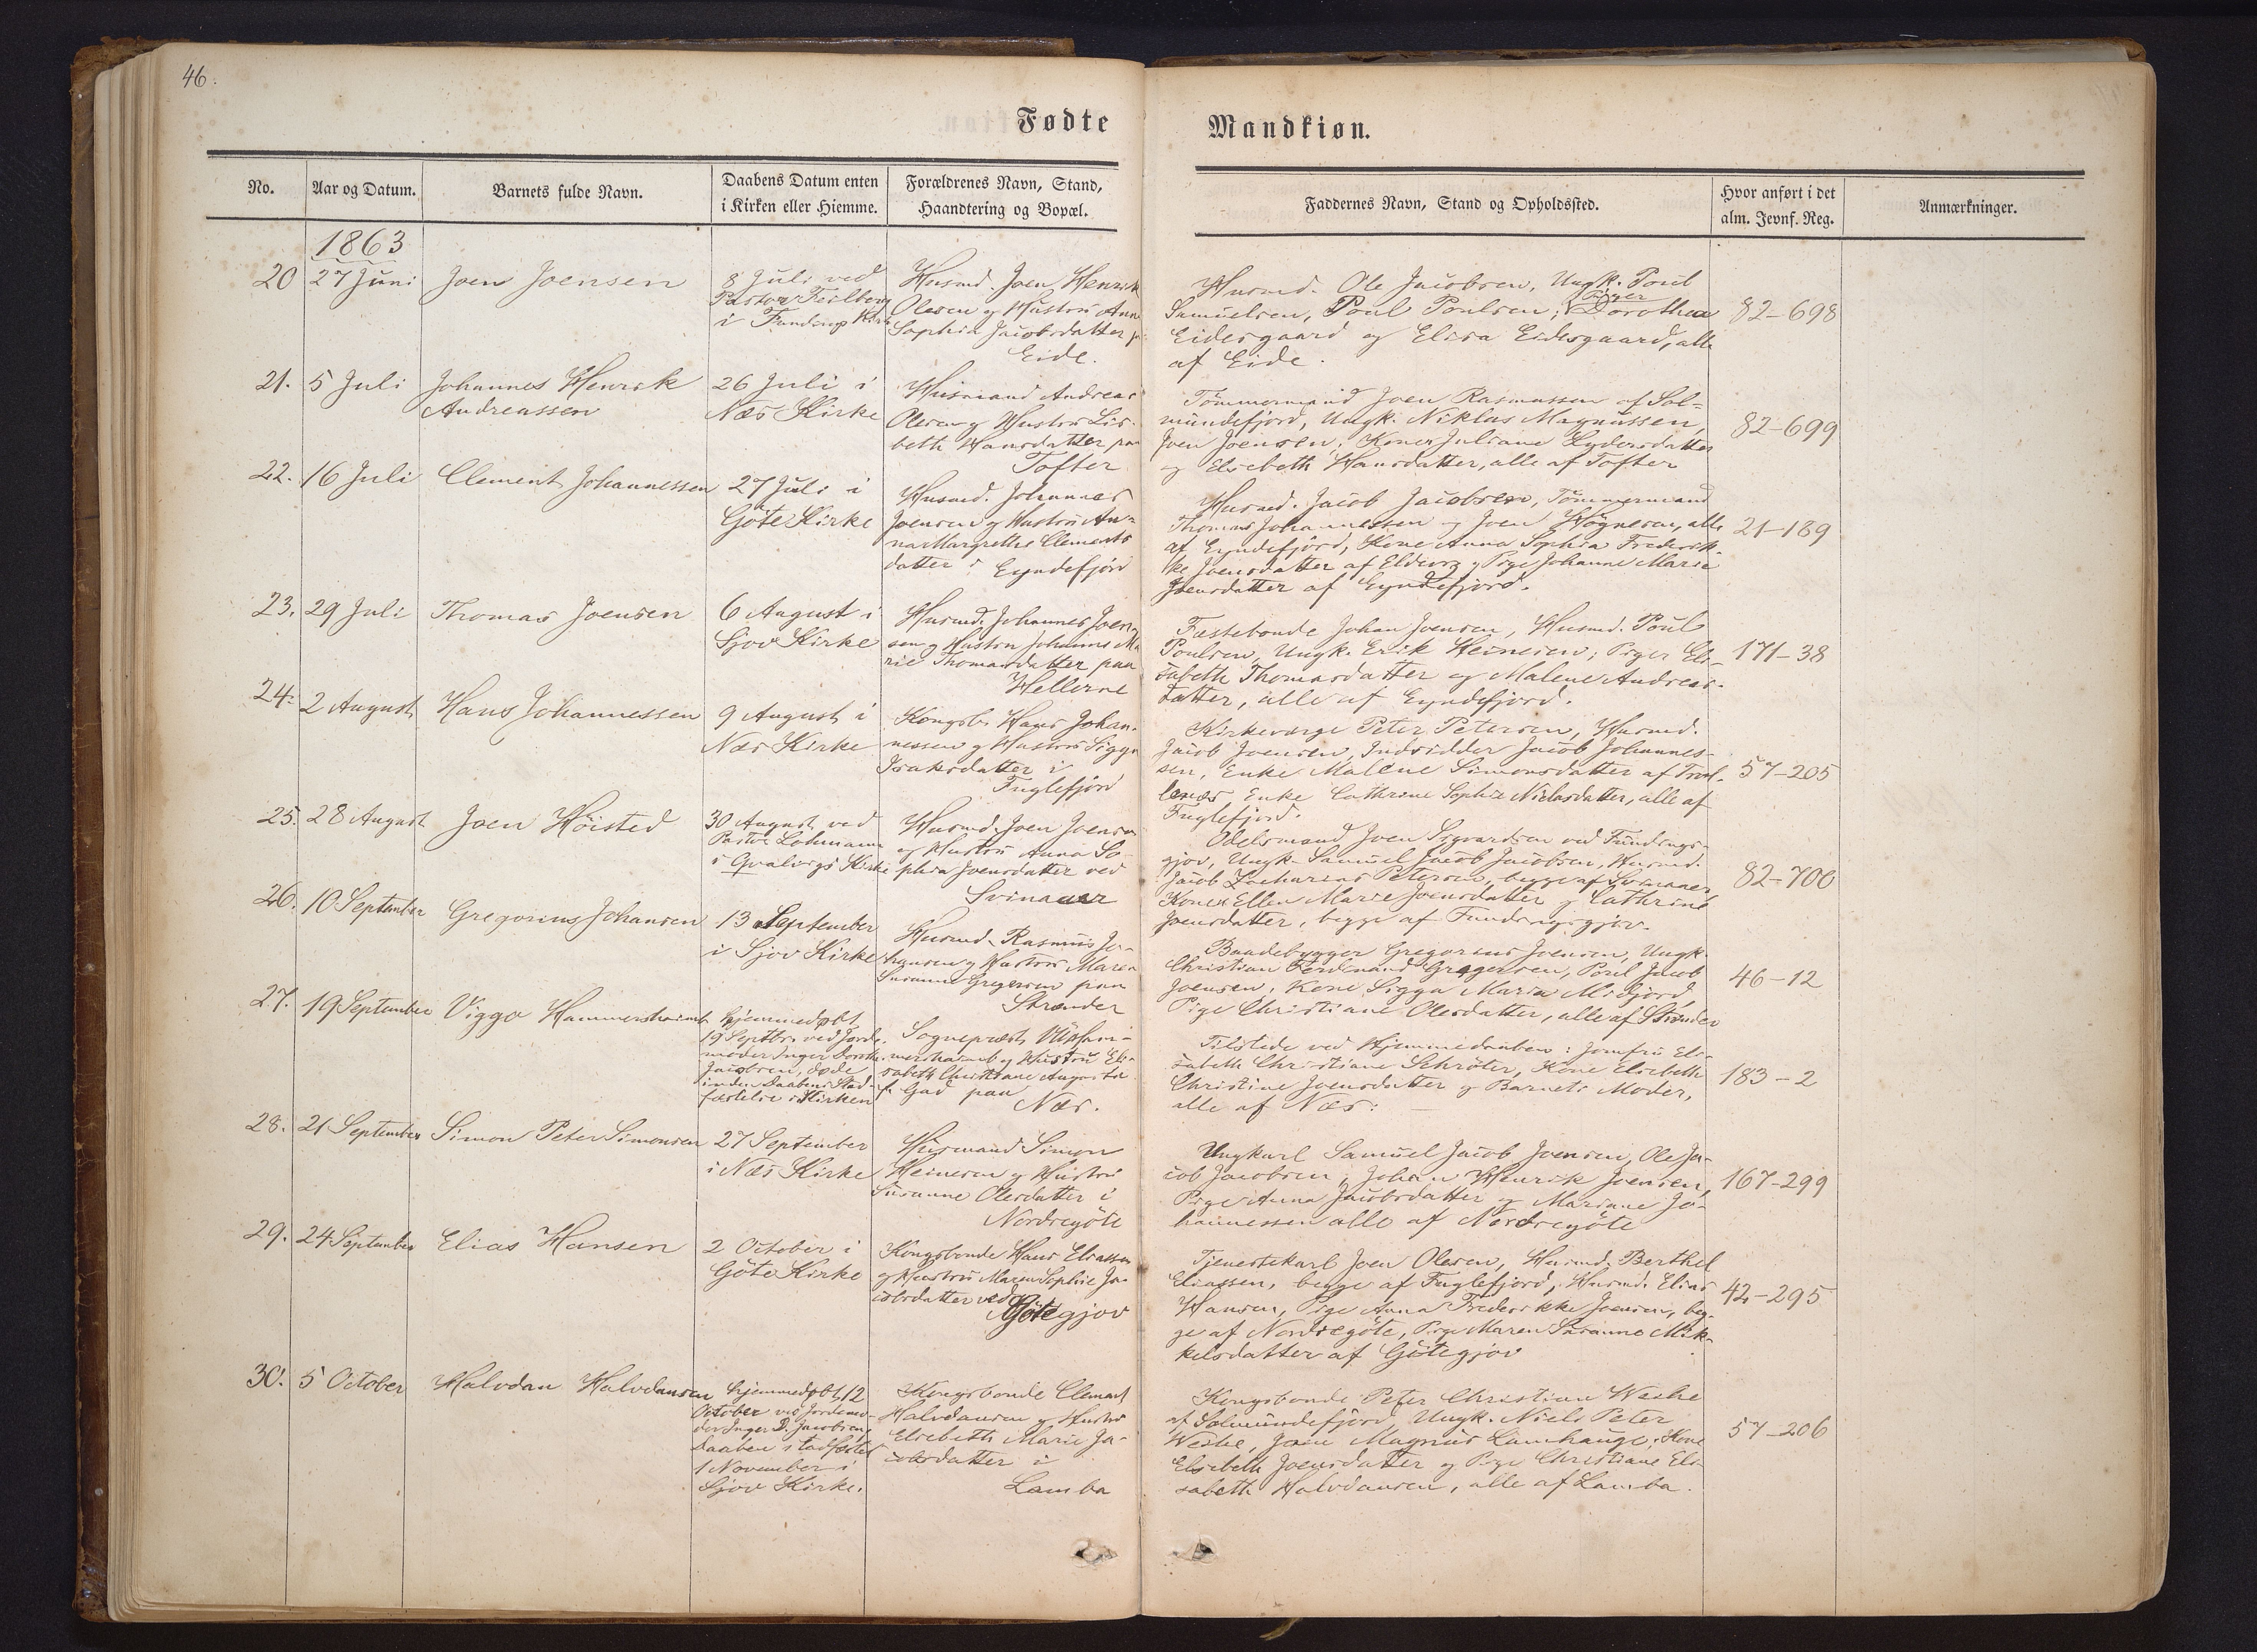 46.
Fødte
Mandkiøn.
No.
Aar og Datum.
Barnets fulde Navn.
Daabens Datum enten
i Kirken eller Hiemme.
Forældrenes Navn, Stand,
Haandtering og Bopæl.
Faddernes Navn, Stand og Opholdssted.
Hvor anført i det
alm. Jevnf. Reg.
Anmærkninger.
1863
20
27 Juni
Joen Joensen
8 Juli ved
Pastor Feilberg
i Fundings Kirke
Husmd. Joen Henrik
Olesen og Hustru Anna
Sophia Jacobsdatter
Eide.
Husmd. Ole Jacobsen, Ungk. Poul
Samuelsen, Poul Poulsen; Piger Dorothea
Eidesgaard og Elisa Eidesgaard, alle
af Eide.
82-698
21.
5 Juli
Johannes Henrik
Andreassen
26 Juli i
Næs Kirke
Husmand Andreas
Olesen og Hustru Lis-
beth Hansdatter paa
Tofter
Tömmermand Joen Rasmussen af Sol-
mundefjord, Ungk. Niklas Magnussen,
Joen Joensen; Koner Juliane Lydersdatter
og Elsebeth Hansdatter, alle af Tofter
82-699
22.
16 Juli
Clement Johannessen
27 Juli i
Göte Kirke
Husmd. Johannes
Joensen og Hustru An-
na Margrethe Clements
datter i Eyndefjörd
Husmd. Jacob Jacobsen, Tömmermand
Thomas Johannessen og Joen Högnesen, alle
af Eyndefjörd, Kone Anna Sophia Frederik-
ke Joensdatter af Eldevig og Pige Johanne Marie
Joensdatter af Eyndefjord.
21-189
23.
29 Juli
Thomas Joensen
6 August i
Sjov Kirke
Husmd. Johannes Joen-
sen og Hustru Johanne Ma
rie Thomasdatter paa
Hellerne
Fæstebonde Johan Joensen, Husmd. Poul
Poulsen, Ungk. Erik Heinesen; Piger Eli-
sabeth Thomasdatter og Malene Andreas-
datter, alle af Eyndefjord.
171-38
24.
2 August
Hans Johannessen
9 August i
Næs Kirke
Kongsb. Hans Johan-
nessen og Hustru Sigga
Isaksdatter i
Fuglefjörd
Kirkeværge Peter Petersen, Husmd.
Jacob Joensen, Indsidder Jacob Johannes-
sen, Enke Malene Simonsdatter af Trol-
lenæs Enke Cathrine Sophie Niclasdatter, alle af
Fuglefjord.
57-205
25.
28 August
Joen Höisted
30 August ved
Pastor Lohmann
i Qvalvigs Kirke
Husmd. Joen Joensen
og Hustru Anna So-
phia Joensdatter ved
Svinaaer
Odelsmand Joen Sigvardsen ved Fundings-
gjov, Ungk. Samuel Jacob Jacobsen, Husmd.
Jacob Zacharias Petersen, begge af Svinaaer,
Koner Ellen Marie Joensdatter og Cathrine
Joensdatter, begge af Fundingsgjov.
82-700
26.
10 September
Gregorius Johansen
13 September
i Sjov Kirke
Husmd. Rasmus Jo-
hansen og Hustru Maren
Susanne Gregersen paa
Strænder
Baadebygger Gregorius Joensen, Ungk.
Christian Ferdinand Gregersen, Poul Jacob
Joensen, Kone Sigga Maria Midjord,
Pige Christiane Olesdatter, alle af Strænder
46-12
27.
19 September
Viggo Hammershaimb
hjemmedøbt
19 Septbr. ved Jorde-
moder Inger Dorth.
Jacobsen, døde
inden Daabens Stad-
fæstelse i Kirken
Sognepræst VU Ham-
mershaimb og Hustru Eli-
sabeth Christiane Augusta
f. Gad paa
Næs.
Tilstede ved Hjemmedaaben: Jomfru Eli-
sabeth Christiane Schröter, Kone Elsebeth
Christine Joensdatter og Barnets Moder,
alle af Næs:
183-2
28.
21 September
Simon Peter Simonsen
27 September
i Næs Kirke
Husmand Simon
Heinesen og Hustru
Susanne Olesdatter i
Nordregöte
Ungkarl Samuel Jacob Joensen, Ole Ja-
cob Jacobsen, Johan Henrik Joensen,
Pige Anna Jacobsdatter og Mariane Jo-
hannessen alle af Nordregöte
167-299
29.
24 September
Elias Hansen
2 October i
Göte Kirke
Kongsbonde Hans Eliassen
og Hustru Maren Sophie Ja-
cobsdatter ved
Götegjov
Tjenestekarl Joen Olesen, Husmd. Berthel
Eliassen, begge af Fuglefjord, Husmd. Elias
Hansen, Pige Anna Frederikke Joensen, beg-
ge af Nordregöte, Pige Maren Susanne Mik-
kelsdatter af Götegjov
42-295
30.
5 October
Halvdan Halvdansen
hjemmedøbt 12
October ved Jordemo-
der Inger D. Jacobsen,
Daaben stadfæstet
1 November i
Sjov Kirke.
Kongsbonde Clement
Halvdansen og Hustru
Elsebeth Marie Ja-
cobsdatter i
Lamba
Kongsbonde Peter Christian Weihe
af Solmundefjörd, Ungk. Niels Peter
Weihe, Joen Magnus Lamhauge; Kone
Elsebeth Joensdatter og Pige Christiane Eli-
sabeth Halvdansen, alle af Lamba.
57-206